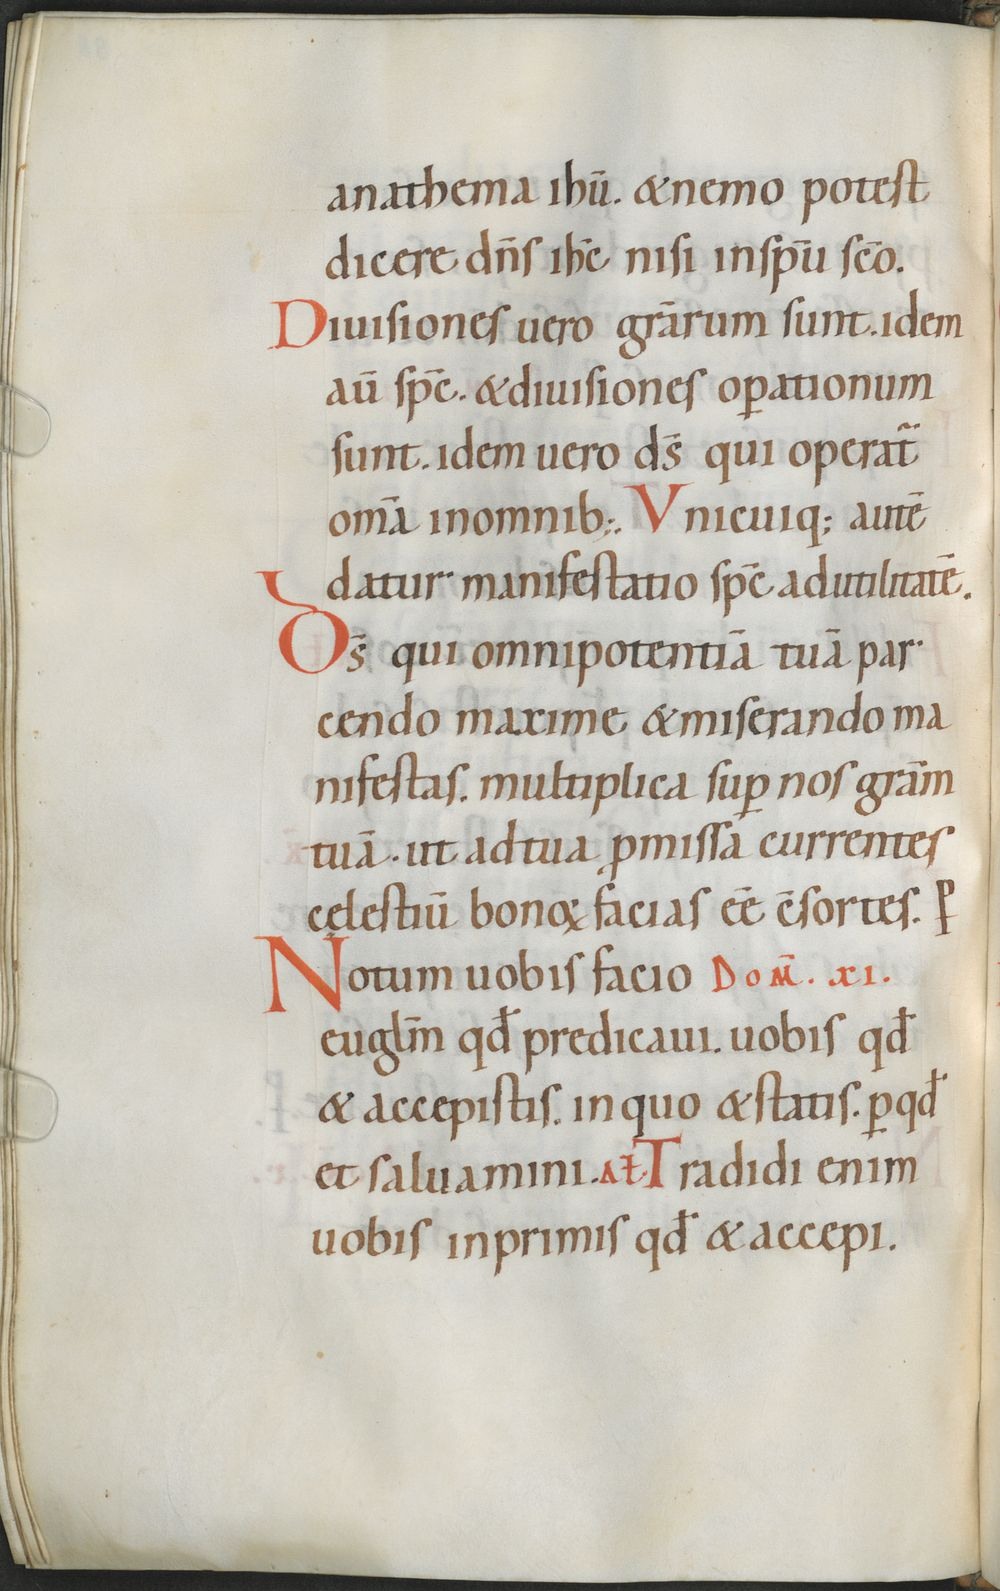 anathema ihū. & nemo potest
dicere dn̄s ihc̄ nisi in spū sc̄o.
Diuisiones uero grārum sunt. idem
aū spc̄. & diuisiones oꝑationum
sunt. idem uero ds̄ qui operat̄
om̄a in omnib;. Vnicuiq; autē
datur manifestatio spc̄ ad utilitatē.
Ds̄ qui omnipotentiā tuā par
cendo maxime & miserando ma
nifestas. multiplica suꝑ nos grām
tuā. ut ad tua ꝓmissa currentes
cęlestiū bonoꝝ facias eē c̄sortes. ꝑ
Notum uobis facio Dom̄. xi.
eugl̄m qđ predicaui. uobis qđ
& accepistis. in quo & statis. ꝑ qđ
et saluamini. Al̄t Tradidi enim
uobis inprimis qđ & accepi.